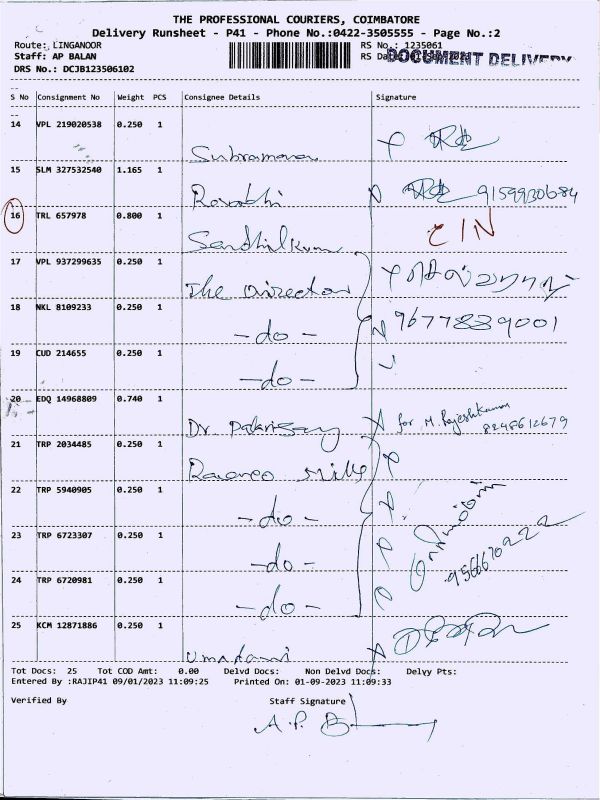 THE PROFESSIONAL COURIERS, COIMBATORE
Delivery Runsheet - P41 - Phone No.:0422-3505555 - Page No.:2
Route: LINGANOOR RS No.: 1235061
Staff: AP BALAN RS Da DOCUMENT DELIVERY
DRS No.: DCJB123506102
S No Consignment No Weight PCS Consignee Details Signature
14 VPL 219020538 0.250 1
15 SLM 327532540 1.165 1 9159930684
16 TRL 657978 0.800 1
17 VPL 937299635 0.250 1 The Director
18 NKL 8109233 0.250 1 -do- 96778839001
19 CUD 214655 0.250 1 -do-
20 EDQ 14968809 0.740 1 Dr. for M. Rajeshkumar
8248612679
21 TRP 2034485 0.250 1 Mills
22 TRP 5940905 0.250 1 -do-
23 TRP 6723307 0.250 1 -do-
24 TRP 6720981 0.250 1 -do-
25 KCM 12871886 0.250 1
Tot Docs: 25 Tot COD Amt: 0.00 Delvd Docs: Non Delvd Docs: Delyy Pts:
Entered By :RAJIP41 09/01/2023 11:09:25 Printed On: 01-09-2023 11:09:33
Verified By Staff Signature